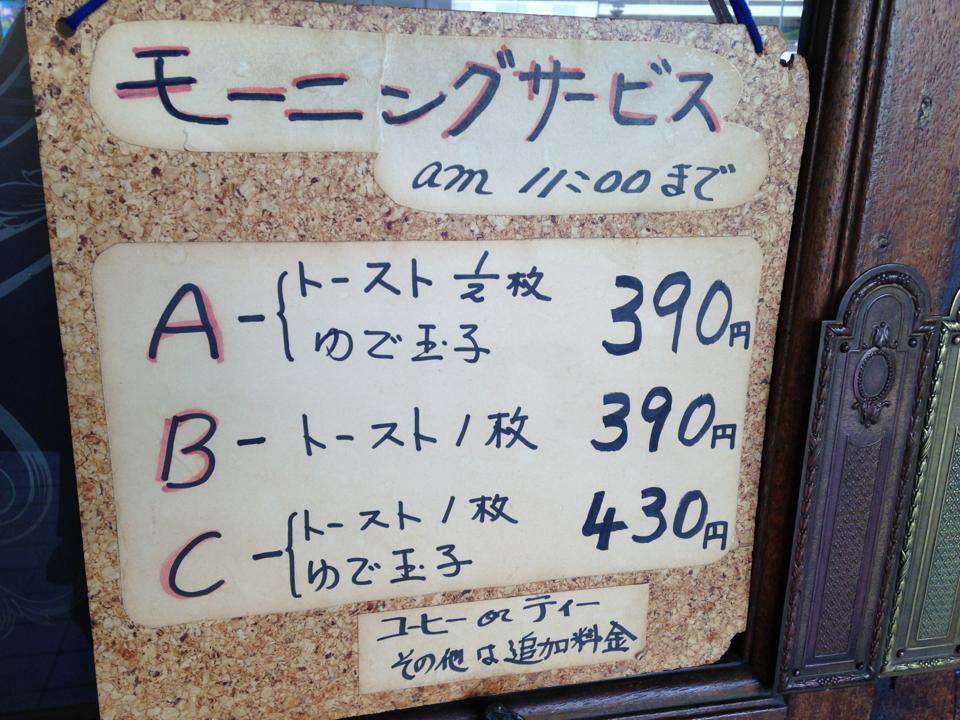 モーニングサービス
am 11:00まで
A－トースト 1/2枚
ゆで玉子
390円
B－トースト1枚 390円
C－トースト1枚
ゆで玉子
430円
コーヒー or ティー
その他は追加料金